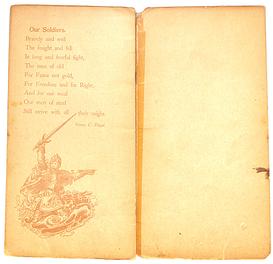 Our Soldiers.
Bravely and well
They fought and fell
In long and fearful fight,
The men of old
For Fame not gold,
For Freedom and for Right,
And for our weal
Our men of steel
Still strive with all their might.